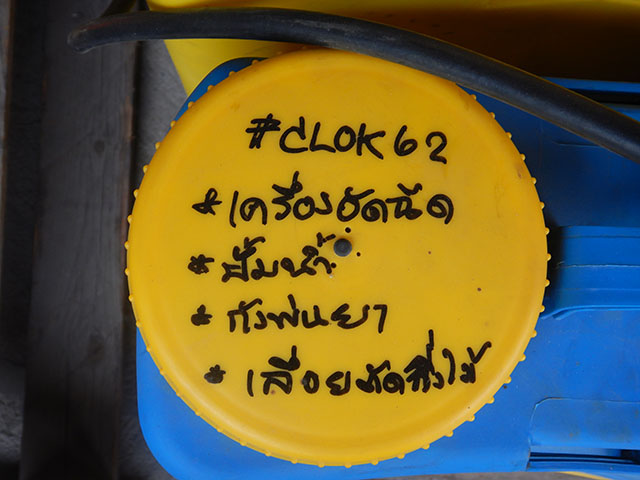 #CLOK62
* เครื่องอัดฉีด
* ปั๊มน้ำ
* ถังพ่นยา
* เลื่อยตัดกิ่งไม้